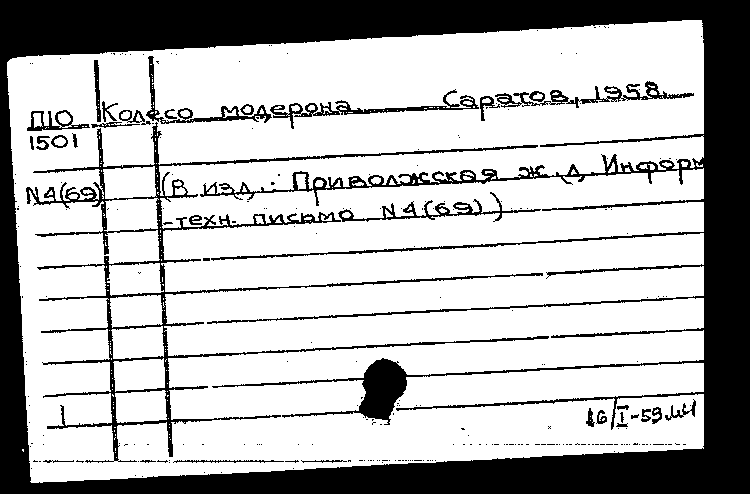 П10 Колесо модерона. Саратов, 1958.
1501
N4(69) (В изд.: Приволжская ж.д. Информ
-техн. письмо N4(69))
1
16/I-59